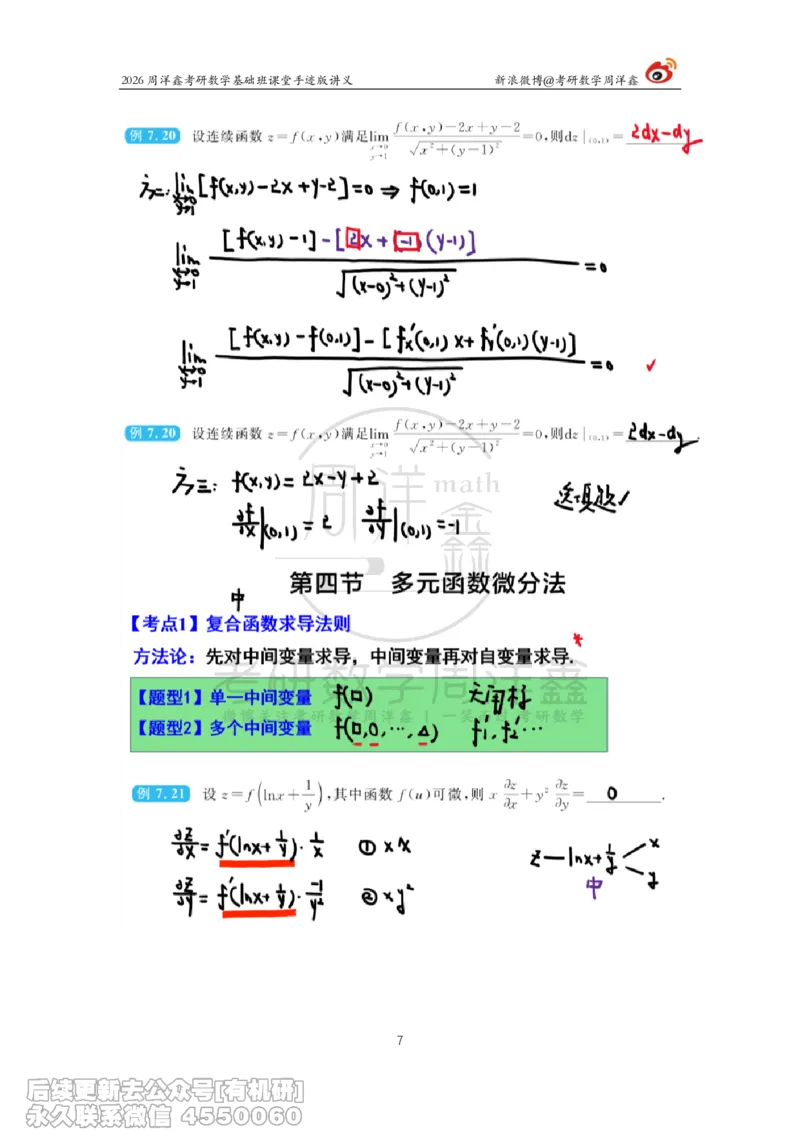 2026 周洋鑫考研数学基础班课堂手迹版讲义 新浪微博@考研数学周洋鑫
例 7.20 设连续函数 z=f(x,y)满足lim_{x→0, y→1} (f(x,y)-2x+y-2)/√(x²+(y-1)²)=0,则dz|(0,1)= 2dx-dy
lim_{x→0, y→1} [f(x,y)-2x+y-2]=0 ⇒ f(0,1)=1
lim_{x→0, y→1} ([f(x,y)-1]-[2x+(-1)(y-1)])/√((x-0)²+(y-1)²) =0
lim_{x→0, y→1} ([f(x,y)-f(0,1)]-[f'x(0,1)x+f'y(0,1)(y-1)])/√((x-0)²+(y-1)²) =0 ✓
例 7.20 设连续函数 z=f(x,y)满足lim_{x→0, y→1} (f(x,y)-2x+y-2)/√(x²+(y-1)²)=0,则dz|(0,1)= 2dx-dy.
方三: f(x,y)=2x-y+2
∂f/∂x|(0,1)=2 ∂f/∂y|(0,1)=-1
周洋鑫 math
第四节 多元函数微分法
中
【考点1】复合函数求导法则
方法论：先对中间变量求导，中间变量再对自变量求导. *
考研数学周洋鑫
【题型1】单一中间变量 f(□)
【题型2】多个中间变量 f(□,○,…,△) f'1, f'2 …
例 7.21 设 z=f(lnx+1/y),其中函数 f(u)可微,则 x ∂z/∂x+y² ∂z/∂y= 0 .
∂z/∂x=f'(lnx+1/y)·1/x ① ×x
∂z/∂y=f'(lnx+1/y)·-1/y² ② ×y²
z—lnx+1/y x y
中
7
后续更新去公众号[有机研]
永久联系微信 4550060